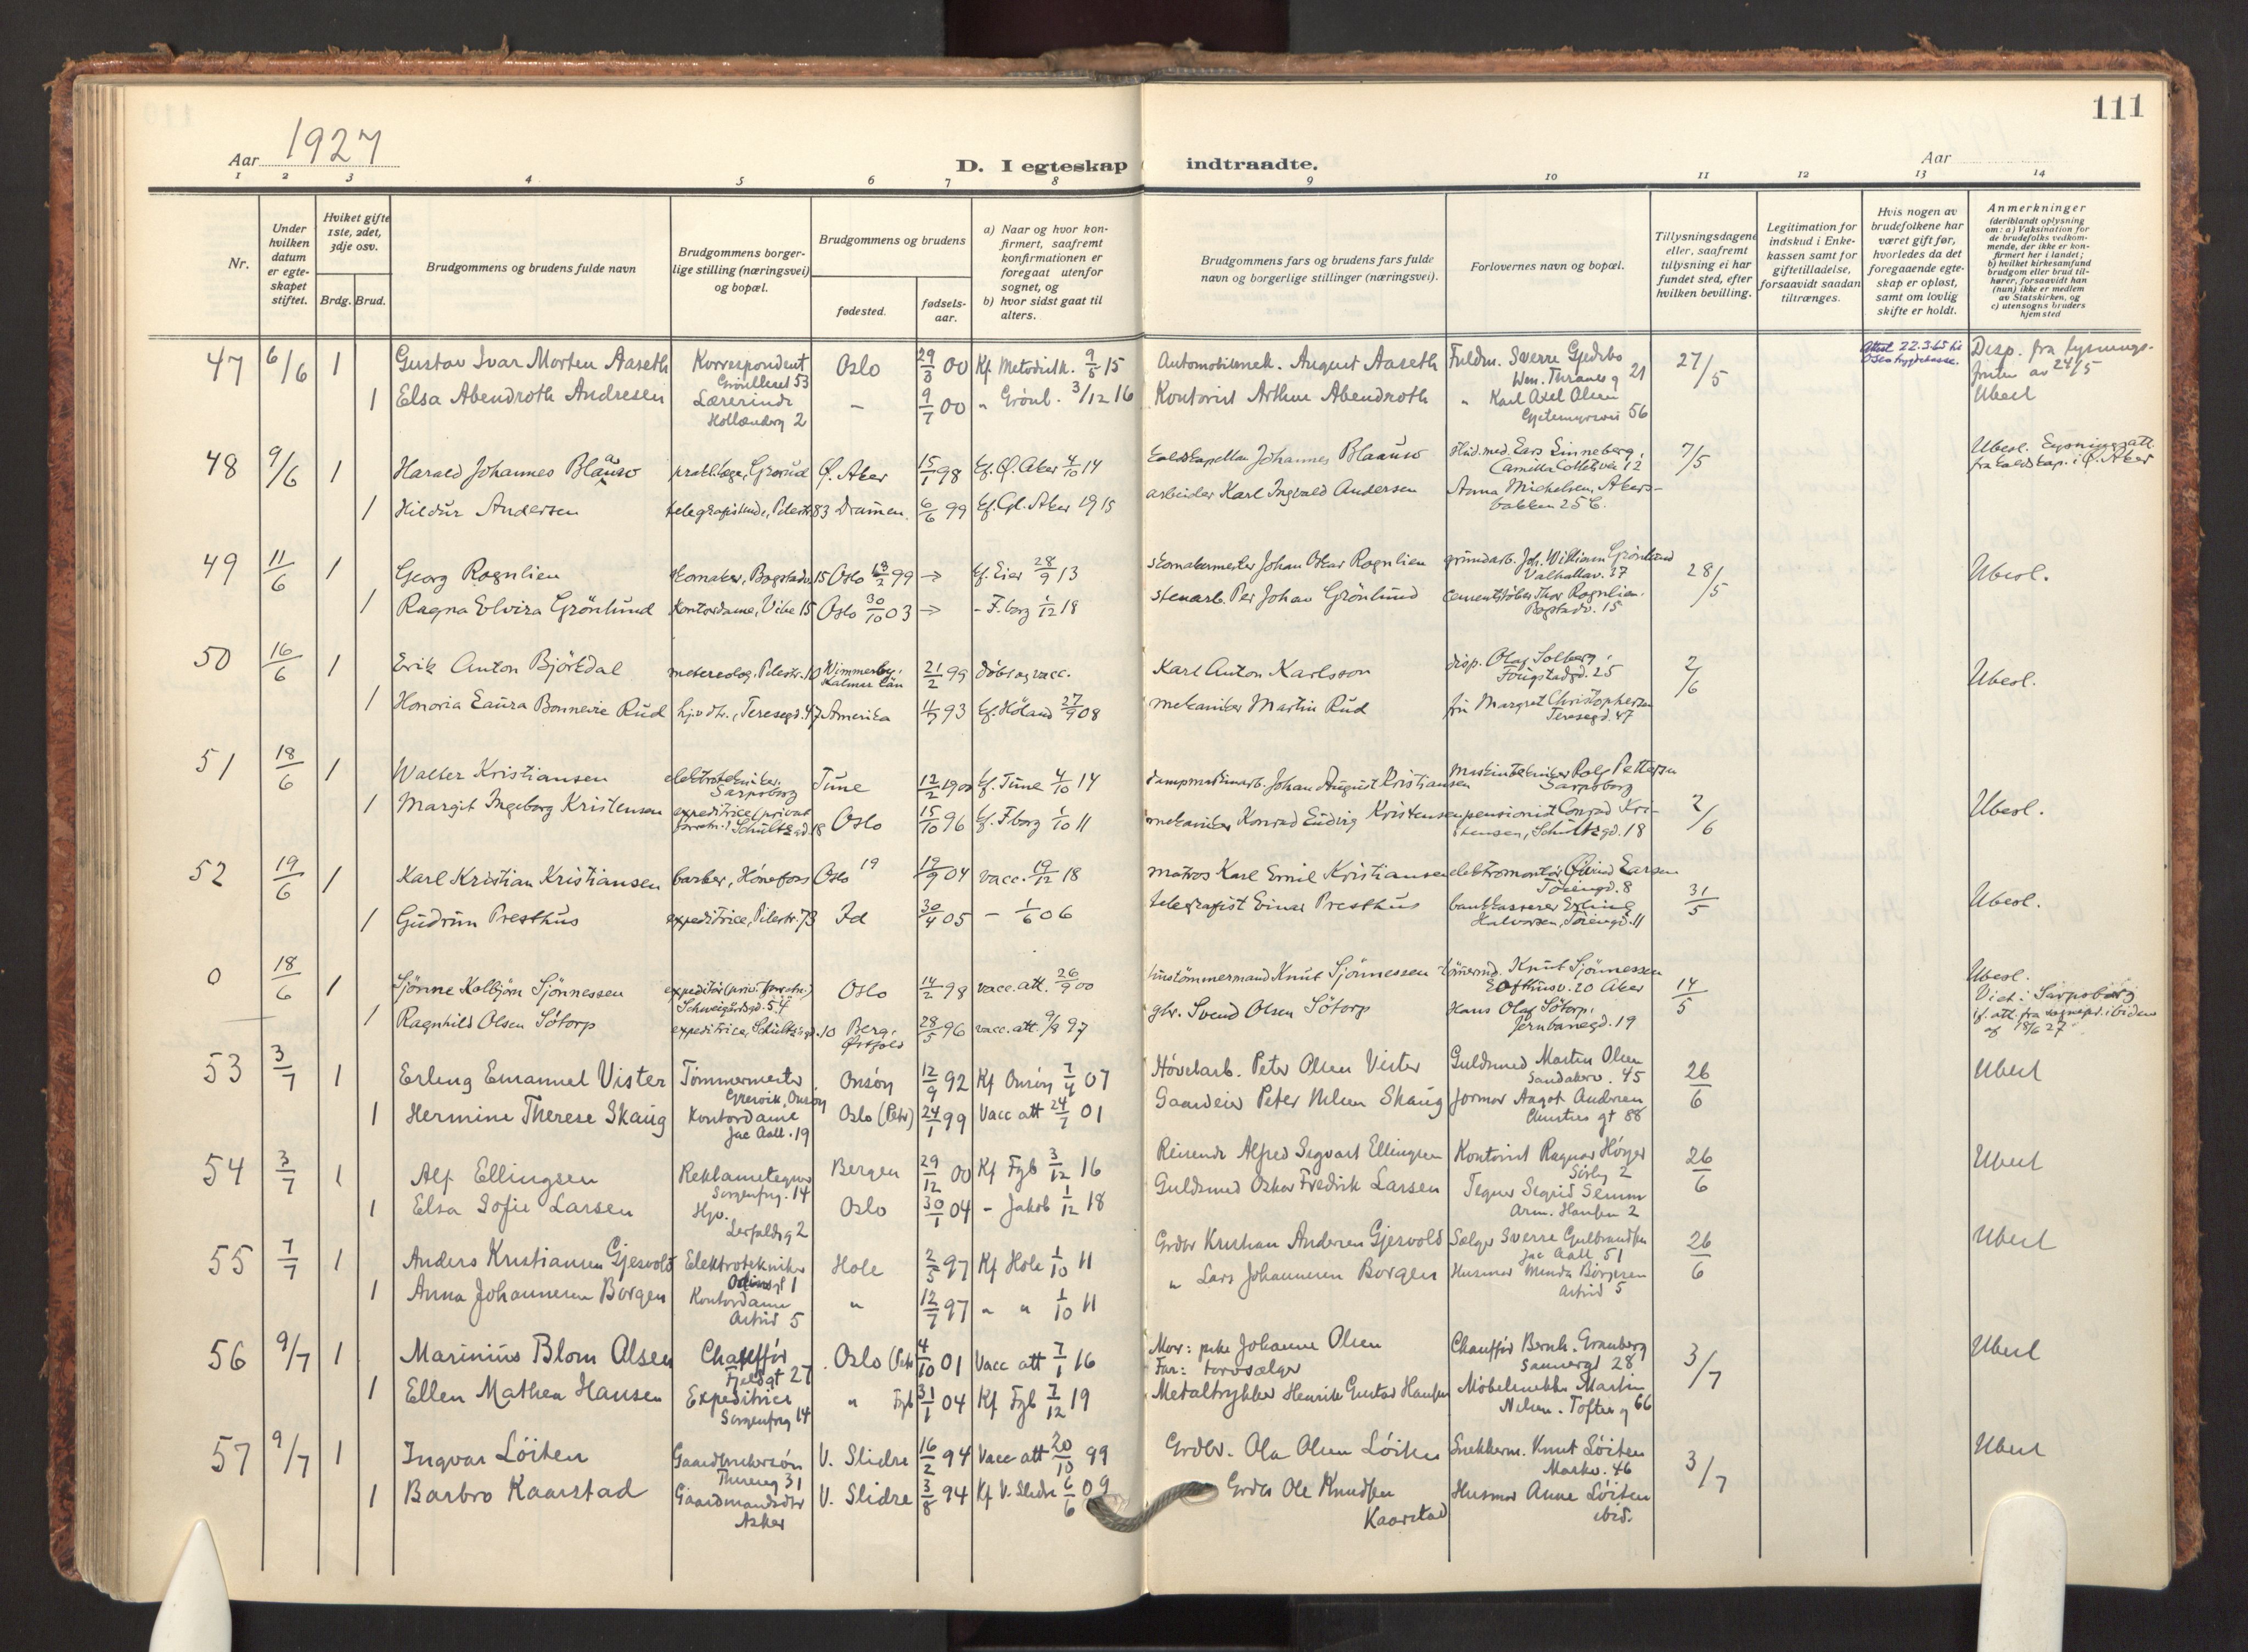 111
Aar 1927
D. I egteskap indtraadte.
Aar
1 2 3 4 5 6 7 8 9 10 11 12 13 14
Nr.
Under hvilken datum er egteskapet stiftet.
Hviket gifte 1ste, 2det, 3dje osv.
Brdg. Brud.
Brudgommens og brudens fulde navn
Brudgommens borgerlige stilling (næringsvei) og bopæl.
Brudgommens og brudens
fødested.
fødselsaar.
a) Naar og hvor konfirmert, saafremt konfirmationen er foregaat utenfor sognet, og
b) hvor sidst gaat til alters.
Brudgommens fars og brudens fars fulde navn og borgerlige stillinger (næringsvei).
Forlovernes navn og bopæl.
Tillysningsdagene eller, saafremt tillysning ei har fundet sted, efter hvilken bevilling.
Legitimation for indskud i Enkekassen samt for giftetilladelse, forsaavidt saadan tiltrænges.
Hvis nogen av brudefolkene har været gift før, hvorledes da det foregaaende egteskap er opløst, samt om lovlig skifte er holdt.
Anmerkninger
(deriblandt oplysning om: a) Vaksination for de brudefolks vedkommende, der ikke er konfirmert her i landet; b) hvilket kirkesamfund brudgom eller brud tilhører, forsaavidt han (hun) ikke er medlem av Statskirken, og c) utensogns bruders hjemsted
47 6/6 1 Gustav Ivar Morten Aaseth Korrespondent Grønlleret 53 Oslo 29/3 00 Kf. Metodistk. 9/5 15 Automobilmek. August Aaseth Fuldm. Sverre Gjedebo Wm. Thranes g 21 27/5 Attest 22.3.65 til Oslo trygdekasse. Disp. fra lysnings- fristen av 24/5
1 Elsa Abendroth Andresen Lærerinde Hollænderg 2 - 9/7 00 " Grönl. 3/12 16 Kontorist Arthur Abendroth " Karl Axel Olsen Gjetemyrsvei 56 Ubesl
48 9/6 1 Harald Johannes Blaauw prakt. læge, Grorud Ø. Aker 15/1 98 kf. Ø. Aker 4/10 14 kaldskapellan Johannes Blaauw stud. med. Lars Linneberg, Camilla Colletsvei 12 7/5 Ubesl. Lysningsatt. fra kaldskap. i Ø. Aker
1 Hildur Andersen telegrafistinde, Pilestr. 83 Drammen. 6/6 99 kf. Gl. Aker 1915 arbeider Karl Ingvald Andersen Anna Michelsen, Akersbakken 25 b.
49 11/6 1 Georg Rognlien skomaker, Bogstadv. 15 Oslo 13/2 99 → kf. Eier 28/9 13 skomakermester Johan Oskar Rognlien grundarb. Joh. William Grönlund Valhallav. 37 28/5 Ubesl.
1 Ragna Elvira Grönlund kontordame, Vibe 15 Oslo 30/10 03 → - F.borg 1/12 18 stenarb. Per Johan Grönlund cementstøber Thor Rognlien. Bogstadv. 15
50 16/6 1 Erik Anton Björkdal metereolog, Pilestr. 10 Wimmerby, Kalmar län 21/2 99 døbt og vacc. Karl Anton Karlsson disp. Olaf Solberg, Fougstadgd. 25 2/6 Ubesl.
1 Honoria Laura Bonnevie Rud hjv. dtr., Teresegd. 47 Amerika 11/7 93 kf. Høland 27/9 08 mekaniker Martin Rud fru Margret Christophersen Teresegd. 47
51 18/6 1 Walter Kristiansen elektrotekniker. Sarpsborg Tune 12/2 1900 kf. Tune 4/10 14 dampmaskinarb. Johan August Kristiansen Maskintekniker Rolf Pettersen Sarpsborg
1 Margit Ingeborg Kristensen expeditrice (privat forretn.) Schultzgd. 18 Oslo 15/10 96 kf. F.borg 1/10 11 mekaniker Konrad Ludvig Kristensen pensionist Conrad Kristensen, Schultzgd. 18 2/6 Ubesl.
52 19/6 1 Karl Kristian Kristiansen barber, Hönefoss Oslo 19 19/9 04 vacc. 19/12 18 matros Karl Emil Kristiansen elektromontör Öivind Larsen Töiengd. 8 31/5 Ubesl.
1 Gudrun Presthus expeditrice, Pilestr. 73 Id 30/4 05 - 1/6 06 telegrafist Einar Presthus bankkasserer Erling Halvorsen, Töiengd. 11
0 18/6 1 Sjönne Kolbjörn Sjönnessen expeditör (priv. forretn.) Schweigårdsgd. 54 Oslo 14/2 98 vacc. att. 26/9 00 hustömmermand Knut Sjönnessen tömmermd. Knut Sjönnessen Eofthusv. 20 Aker 14/5 Ubesl. Viet i Sarpsborg if. att. fra sognepr. ibidem af 18/6 27
1 Ragnhild Olsen Sötorp expeditrice, Schultzgd. 10 Berg, Østfold 28/5 96 vacc. att. 9/8 97 gbr. Svend Olsen Sötorp Hans Olaf Sötorp, Jernbanegd. 19
53 3/7 1 Erling Emanuel Vister Tömmermester Gresvik, Onsöy Onsöy 12/9 92 Kf Onsöy 7/4 07 Hövelarb. Peter Olsen Vister Guldsmed Martin Olsen Sandakerv. 45 26/6 Ubesl
1 Hermine Therese Skaug Kontordame Jac Aall. 19 Oslo (Petr) 24/1 99 Vacc att 24/7 01 Gaardeier Peter Nilsen Skaug Jormor Aagot Andersen gt 88
54 3/7 1 Alf Ellingsen Reklametegner Sorgenfrig. 14 Bergen 29/12 00 Kf Fgb 3/12 16 Reisende Alfred Segvart Ellingsen Kontorist Ragnar Höyer Sörbg 2 26/6 Ubesl
1 Elsa Sofie Larsen Hjv. Lerfaldsg 2 Oslo 30/1 04 - Jakob 1/12 18 Guldsmed Oskar Fredrik Larsen Tegner Sigrid Semm Arm. Hansen 2
55 7/7 1 Anders Kristiansen Gjesvold Elektrotekniker Odinsgt 1 Hole 2/5 97 Kf Hole 1/10 11 Grdbr Kristian Andersen Gjesvold Sælger Sverre Gulbrandsen Jac Aall 51 26/6 Ubesl
1 Anna Johannesen Borgen Kontordame Astrid 5 " 12/7 97 " " 1/10 11 " Lars Johannesen Borgen Husmor Minda Börgesen Astrid 5
56 9/7 1 Marinius Blom Olsen Chauffør Fjeldgt 27 Oslo (Petr 4/10 01 Vacc att 7/1 16 Mor: pike Johanne Olsen Far: torvsælger Chauffør Bernh. Granberg Sannergt 28 3/7 Ubesl
1 Ellen Mathea Hansen Expeditrice Sorgenfrig 14 " Fgb 31/1 04 Kf Fgb 7/12 19 Metaltrykker Henrik Gustav Hansen Möbelsnekker Martin Nilsen. Toftes g 66
57 9/7 1 Ingvar Löiten Gaardbrukersön Thereseg 31 V. Slidre 16/2 94 Vacc att 20/10 99 Grdbr. Ola Olsen Löiten Snekkerm. Knut Löiten Markv. 46 3/7 Ubesl
1 Barbro Kaarstad Gaardmandsdtr Asker V. Slidre 3/8 94 Kf V. Slidre 6/6 09 Grdbr Ole Knudsen Kaarstad Husmor Anne Löiten ibid.